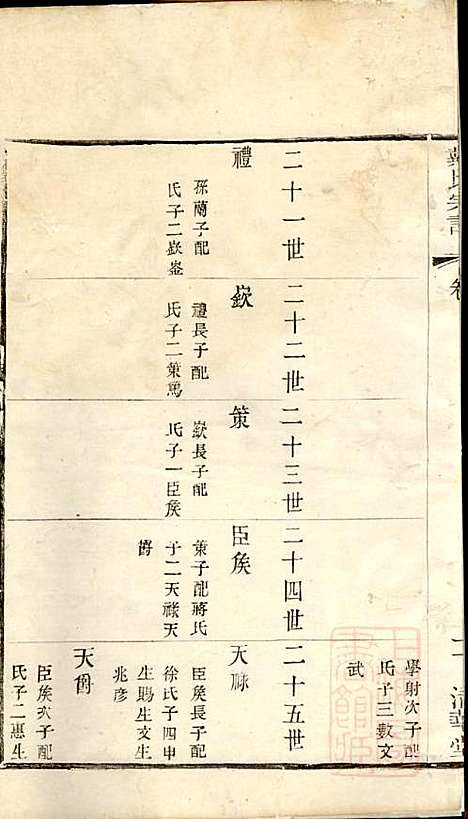 氏宗譜
卷
清華堂
學射次子配
氏子三數文
武
二十一世
禮
孫蘭子配
氏子二嶔崟
二十二世
嶔
禮長子配
氏子二策篤
二十三世
策
嶔長子配
氏子一臣矦
二十四世
臣矦
策子配蔣氏
子二天祿天
爵
二十五世
天祿
臣矦長子配
徐氏子四申
生賜生文生
兆彥
天爵
臣矦次子配
氏子二惠生